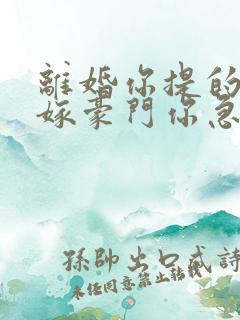 離婚你提的
嫁豪門你急
孫帥出口成詩
未經同意禁止轉載